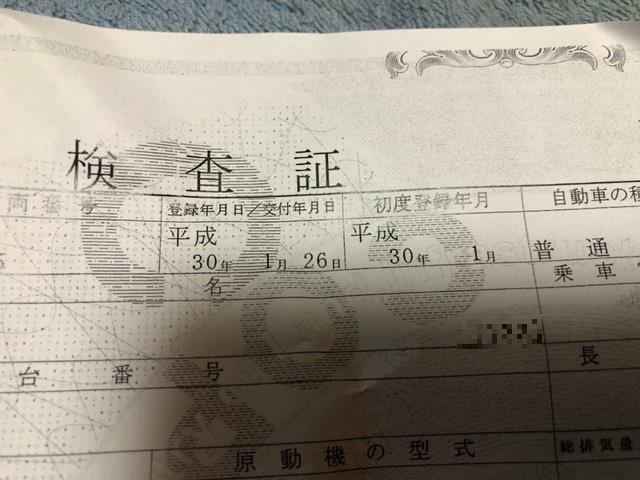 検査証
両番号 登録年月日／交付年月日 初度登録年月 自動車の種
平成 平成
30年 1月 26日 30年 1月 普通
乗車
名
長
台番号
原動機の型式 総排気量